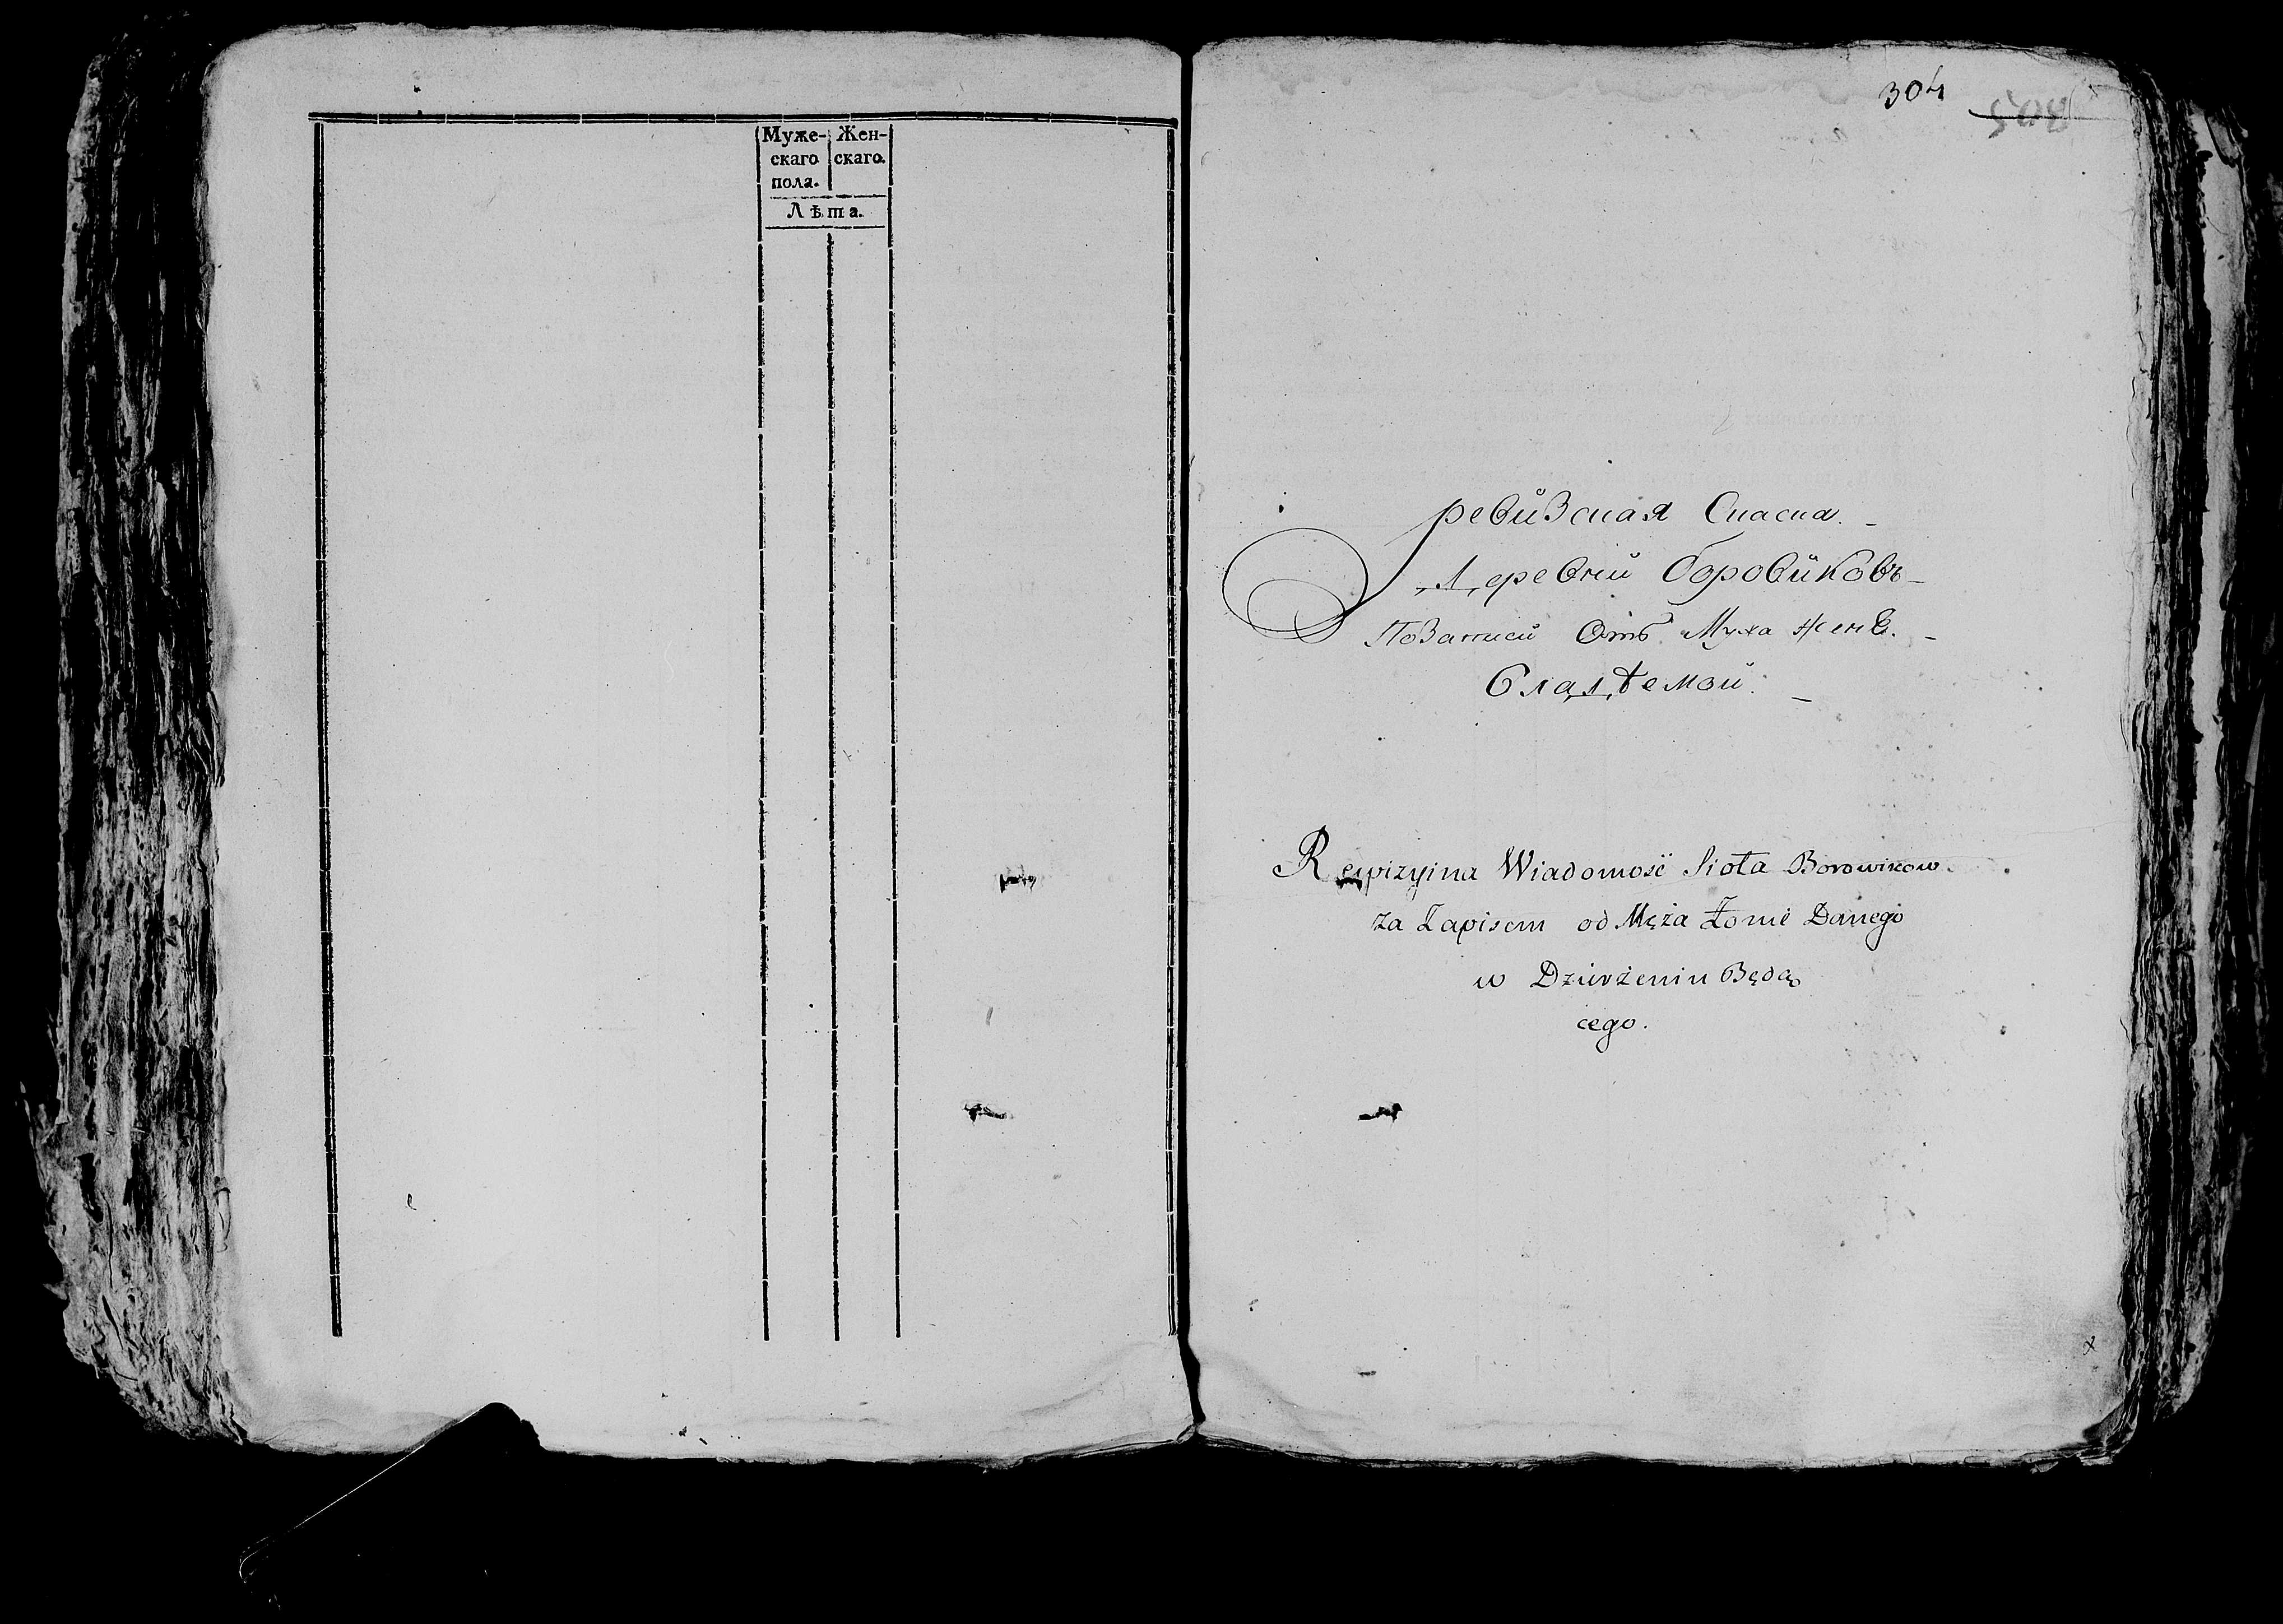 Муже- Жен-
скаго скаго.
пола.
Лѣта.
304
305
ревизская Скаска.
Деревни боровиковъ
Позаписи Отъ Мужа женѣ.
Rewizyina Wiadomość Sioła Borowikow.
za Zapisem od Męża Żonie Danego
w Dzierżeniu Będą
cego.